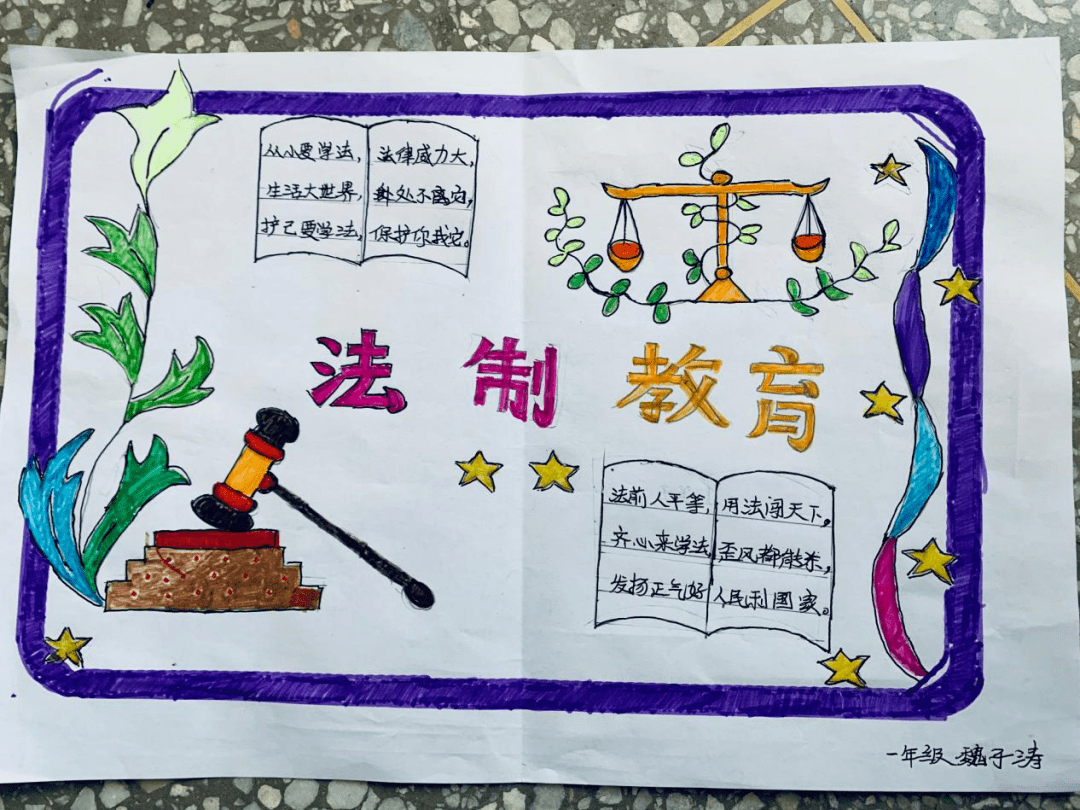 从小要学法，法律威力大，
生活大世界，处处不离它，
护己要学法，保护你我它。
法制教育
法前人平等，用法闯天下。
齐心来学法，歪风都能杀，
发扬正气好 人民利国家。
一年级 魏子涛